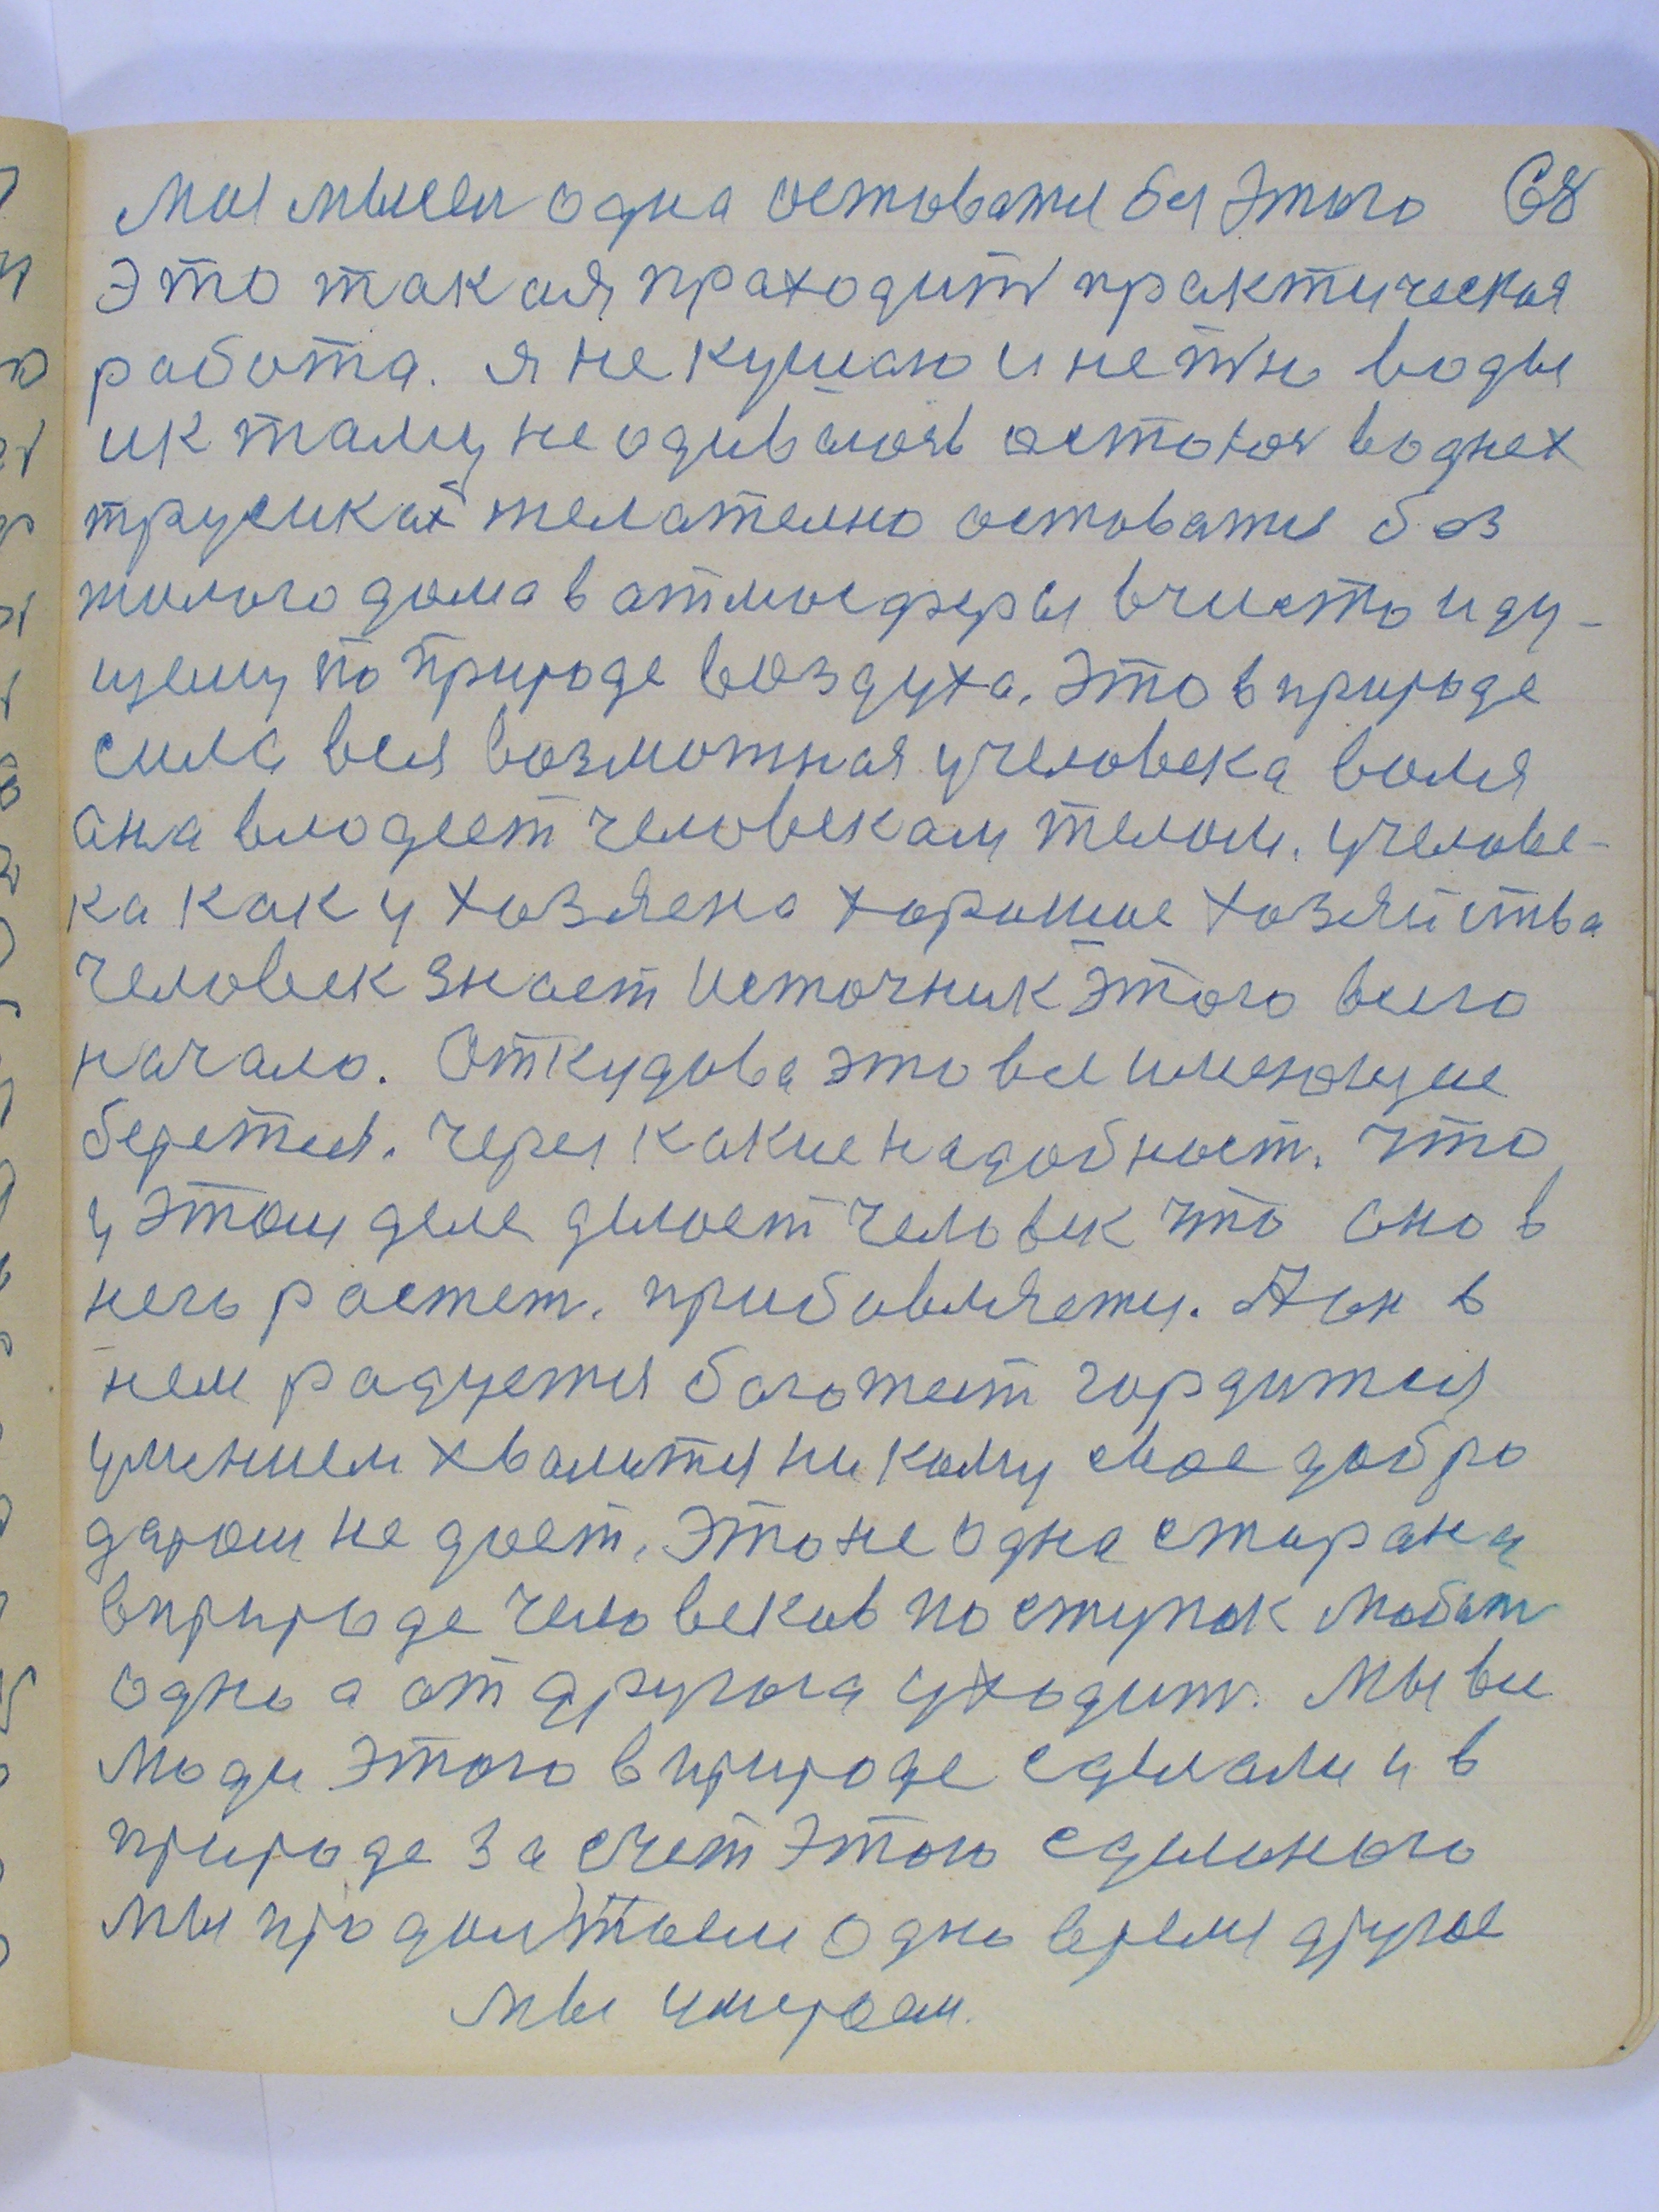 Моя мысел одна остоватся без этого 68
это такая праходит практическая
работа. я не кушаю и не пю воды
ик таму не одиваюсь остаюсь в однех
трусиках желателно остоватся без
жилого дома в атмосферы в чисто иду-
щему по природе воздуха. Это в природе
сила вся возможная у человека воля
она влодеет человекам телом. у челове-
ка как у хозяена хорошие хозяйства
человек знает источник этого всего
начало. Откудова это все имеющие
берется. через какие надобност. что
у этом деле делоет человек что оно в
него ростет. прибовляетс. А он в
нем радуется богожеит гордится
умением хвалится ни кому свое добро
даром не дает. Это не одна старана
в природе человеков поступок любит
одно а от другога уходит. Мы все
люди этого в природе сделали и в
природе за счет этого сделоного
мы продолжаем одно время другое
мы умероем.